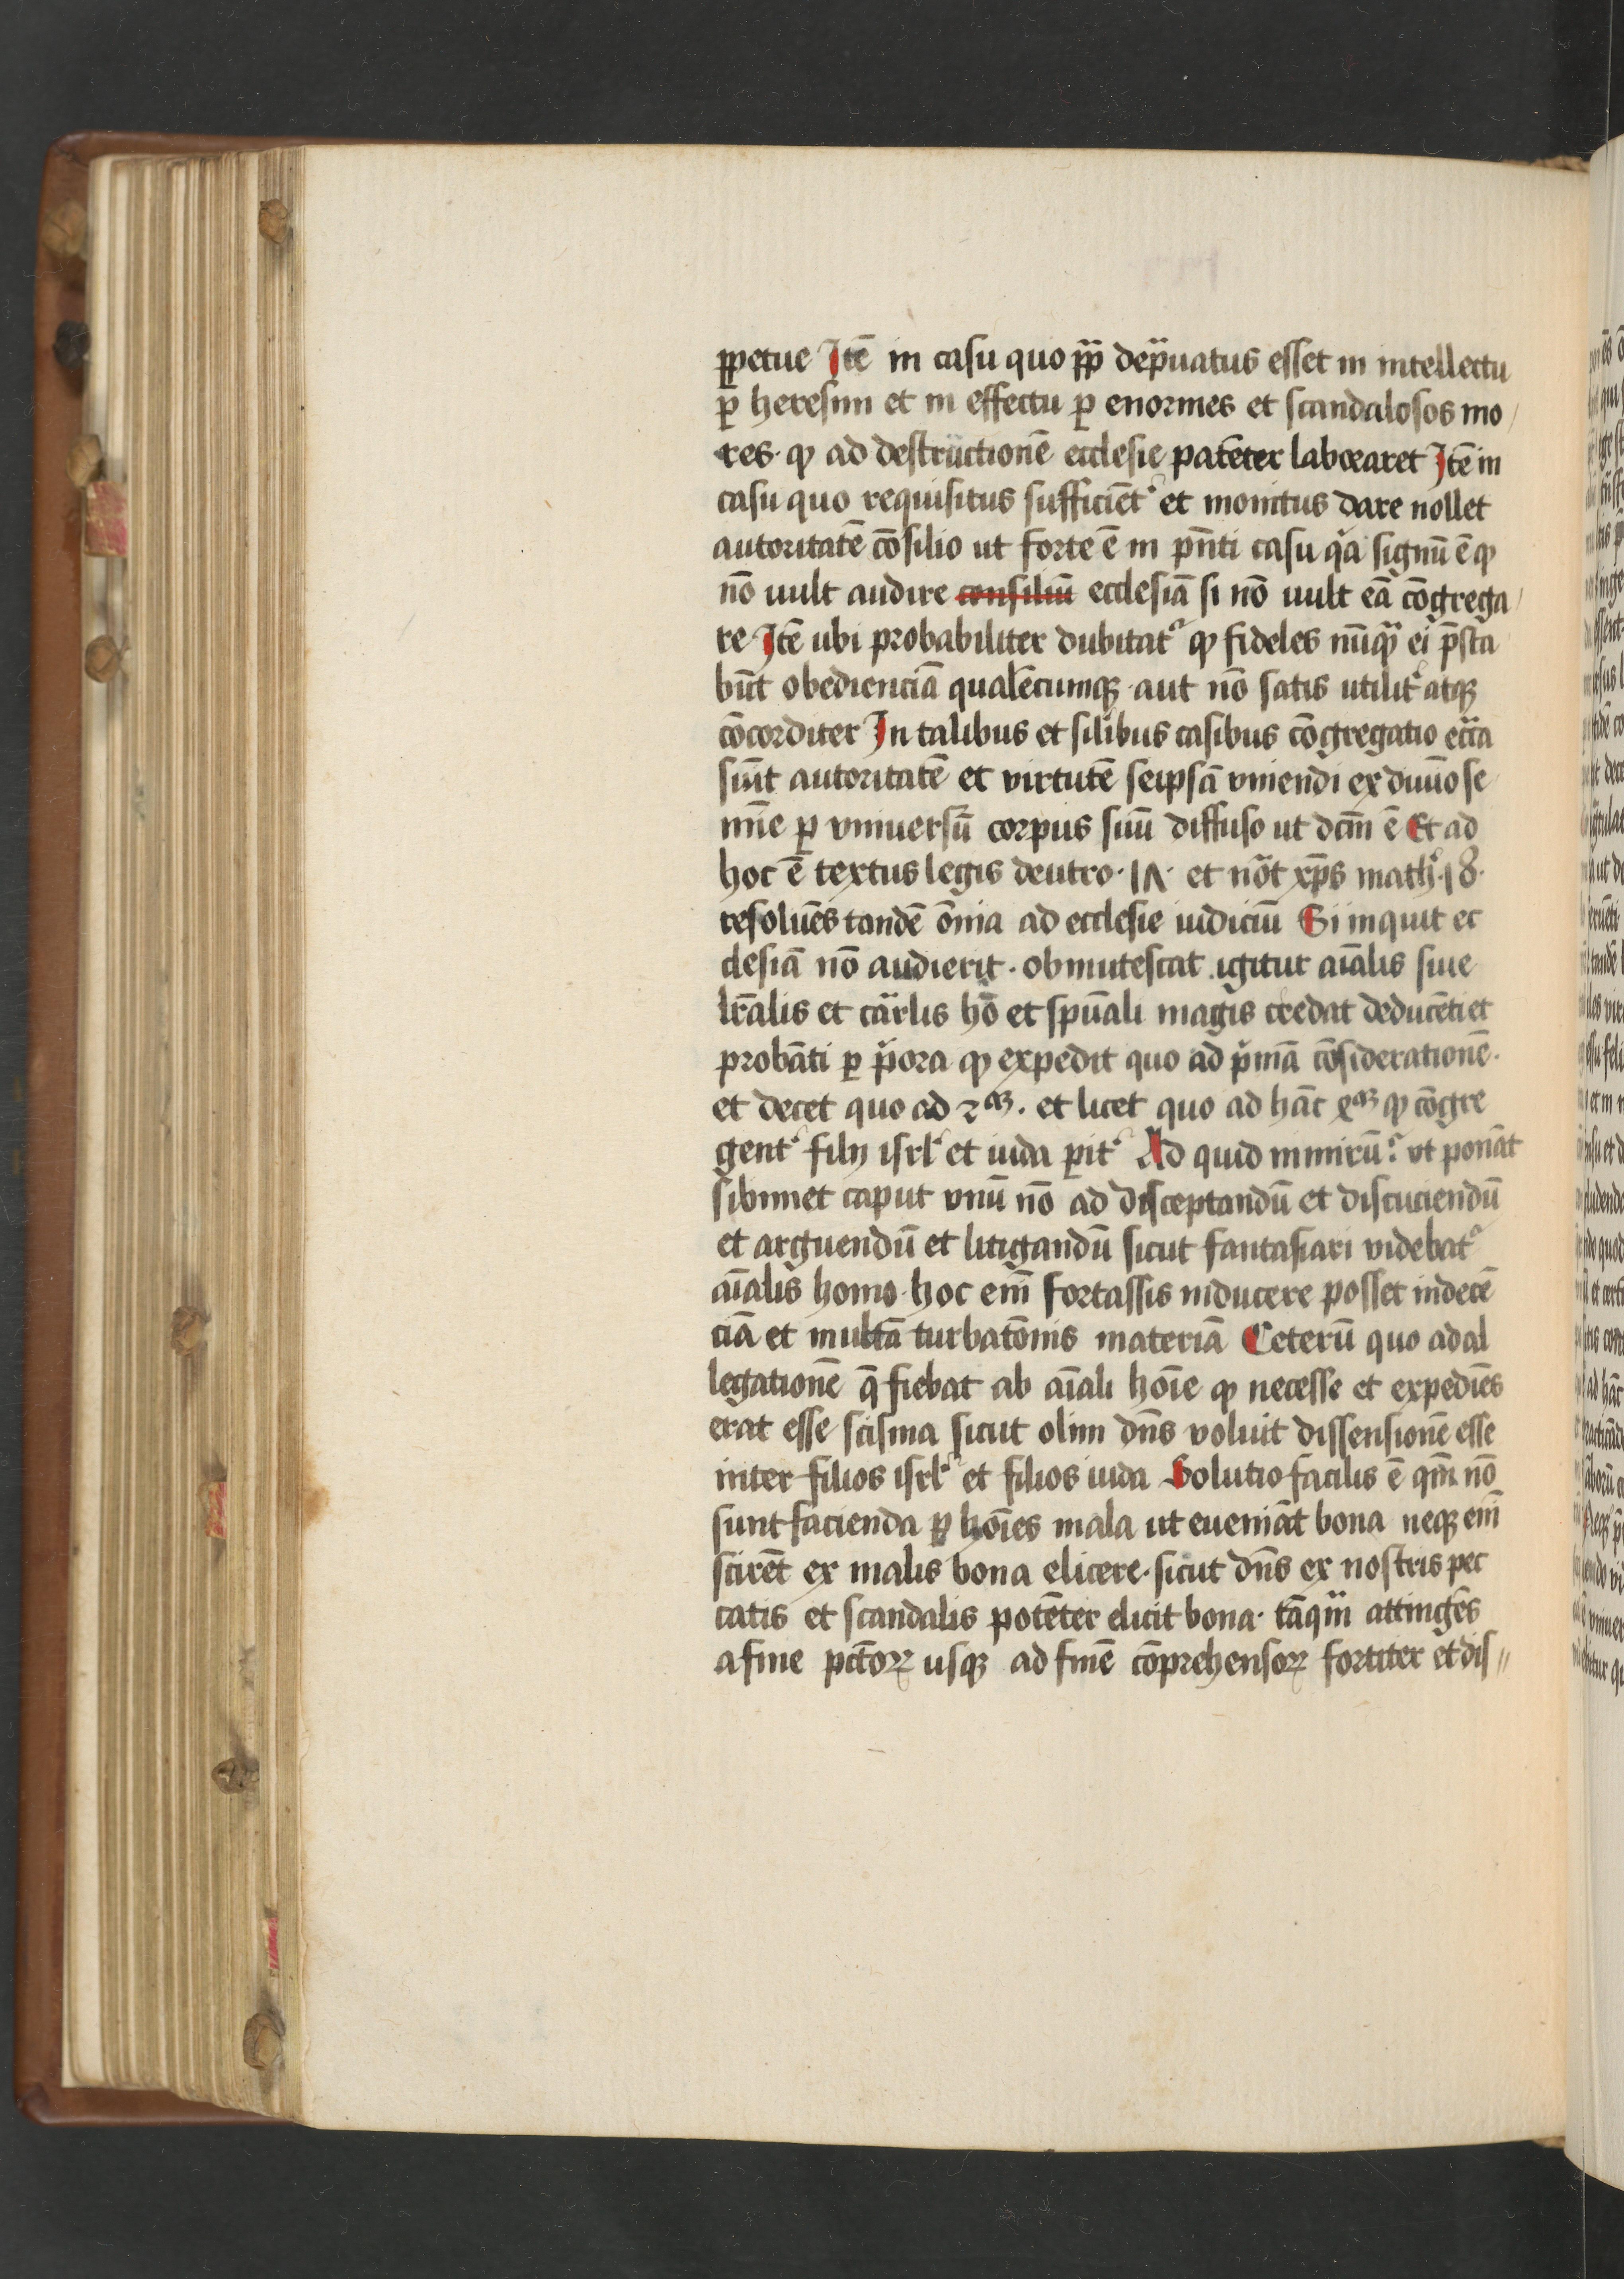 ꝑpetue Itē in casu quo pp̄ dep̄uatus esset in intellectu
ꝑ heresim et in effectu ꝑ enormes et scandalosos mo/
res· ꝙ ad destructionē ecclesie patēter laboraret Itē in
casu quo requisitus sufficiēt᾽ et monitus dare nollet
autoritatē cōsilio ut forte ē in pn̄ti casu q̄a signū ē ꝙ
nō uult audire consiliū ecclesiā si nō uult eā cōgrega/
re Itē ubi probabiliter dubitat᾽ ꝙ fideles nūqᷓ ei p̄sta
būt obedienciā qualēcumqꝫ · aut nō satis utilit᾽ atqꝫ
cōcorditer In talibus et silibus casibus cōgregatio ecc̄a
sūit autoritatē et virtutē seipsā vniendi ex diuīo se
mīe ꝑ vniuersū corpus suū diffuso ut dcm̄ ē Et ad
hoc ē textus legis deutro · 1Λ · et nōt xp̄s math᾽ · 18 ·
resoluēs tandē ōnia ad ecclesie iudiciū Si inquit ec
clesiā nō audierit · obmutescat igitur aīalis siue
lr̄alis et carlis hō et spūali magis credat deducēti et
probāti ꝑ p̄ora ꝙ expedit quo ad p̄mā cōsiderationē ·
et decet quo ad 2ᵃꝫ · et licet quo ad hāc xᵃꝫ ꝙ cōgre
gent᾽ filij isrl᾽ et iuda pit᾽ Ad quid nimirū? vt ponāt
sibimet caput vnū nō ad disceptandū et discuciendū
et arguendū et litigandū sicut fantasiari videbat᾽
aīalis homo · hoc em̄ fortassis inducere posset indecē
ciā et multā turbatōnis materiā Ceterū quo ad al
legationē q̄ fiebat ab aīali hōīe ꝙ necesse et expediēs
erat esse scisma sicut olim dn̄s voluit dissensionē esse
inter filios isrl᾽ et filios iuda Solutio facilis ē qm̄ nō
sunt facienda ꝑ hōīes mala ut eueniāt bona neqꝫ em̄
scirēt ex malis bona elicere · sicut dn̄s ex nostris pec
catis et scandalis potēter elicit bona · tāqm̄ attingēs
a fine pctōꝝ usqꝫ ad finē cōprehensoꝝ fortiter et dis//